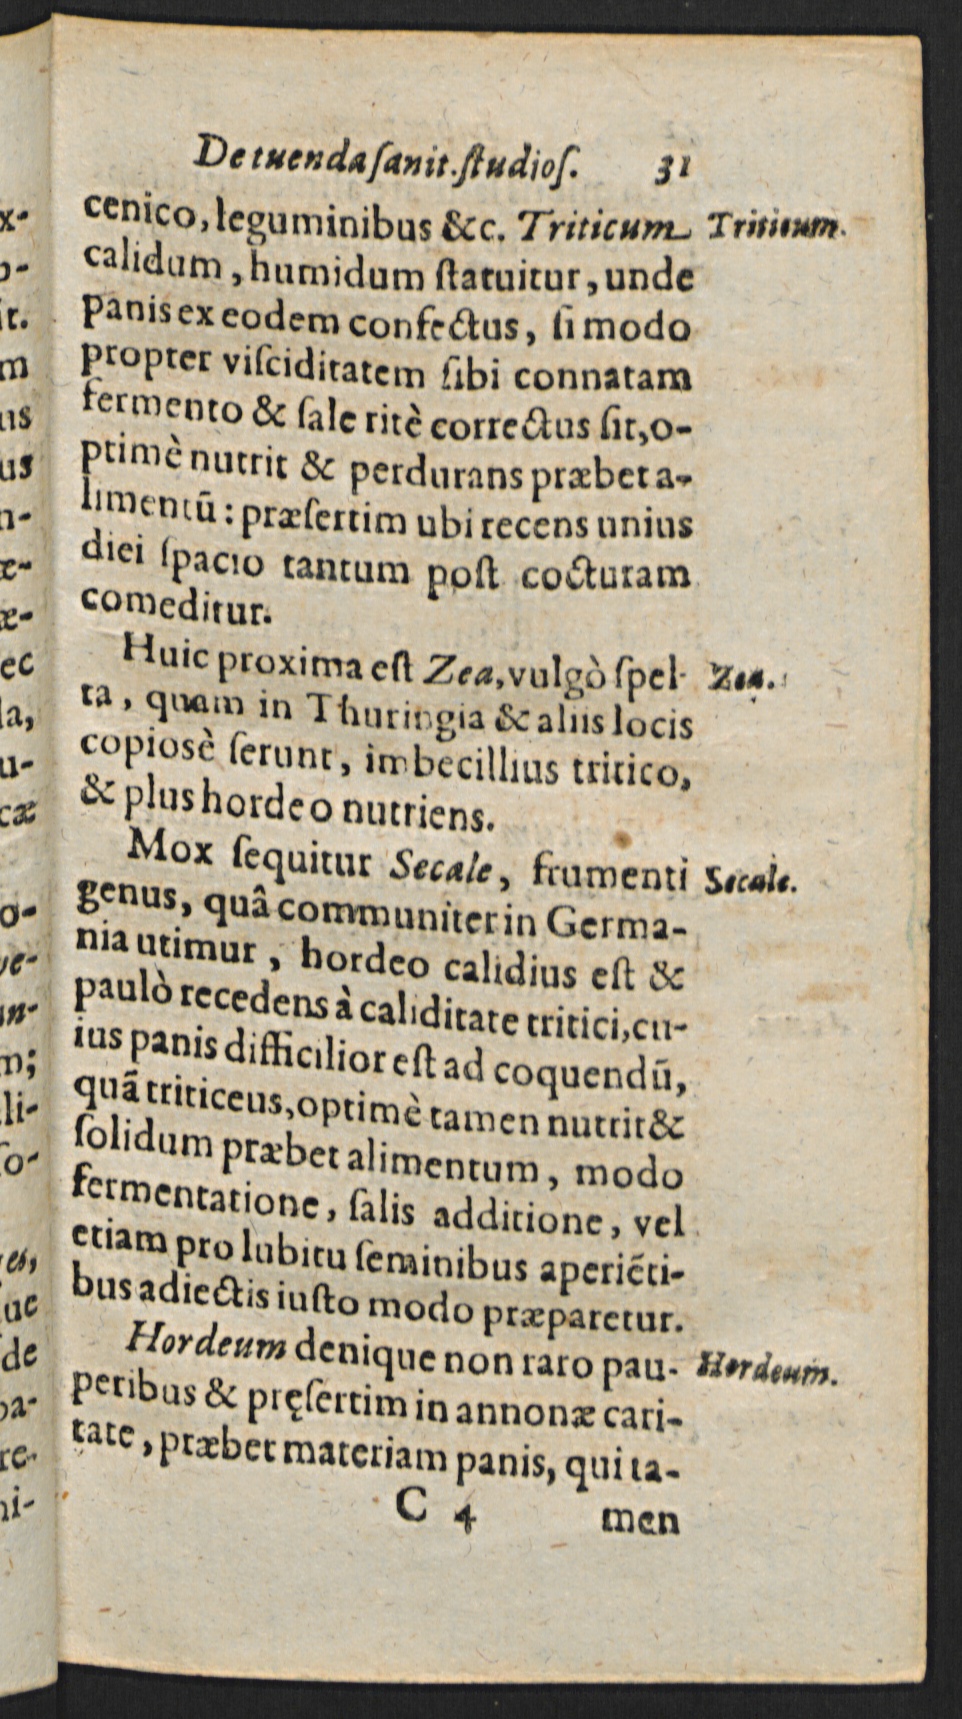 De tuenda ſanit. ſtudioſ. 31
cenico, leguminibus &c. Triticum Triticum.
calidum, humidum ſtatuitur, unde
panis ex eodem confectus, ſi modo
propter viſciditatem ſibi connatam
fermento & ſale ritè correctus ſit, o-
ptimè nutrit & perdurans præbet a-
limentũ: præſertim ubi recens unius
diei ſpacio tantum poſt cocturam
comeditur.
Huic proxima eſt Zea, vulgò ſpel- Zea.
ta, quam in Thuringia & aliis locis
copiosè ſerunt, imbecillius tritico,
& plus hordeo nutriens.
Mox ſequitur Secale, frumenti Secale.
genus, quâ communiter in Germa-
nia utimur, hordeo calidius eſt &
paulò recedens à caliditate tritici, cu-
ius panis difficilior eſt ad coquendũ,
quã triticeus, optimè tamen nutrit &
ſolidum præbet alimentum, modo
fermentatione, ſalis additione, vel
etiam pro lubitu ſeminibus aperiẽti-
bus adiectis iuſto modo præparetur.
Hordeum denique non raro pau- Hordeum.
peribus & pręſertim in annonæ cari-
tate, præbet materiam panis, qui ta-
C 4 men